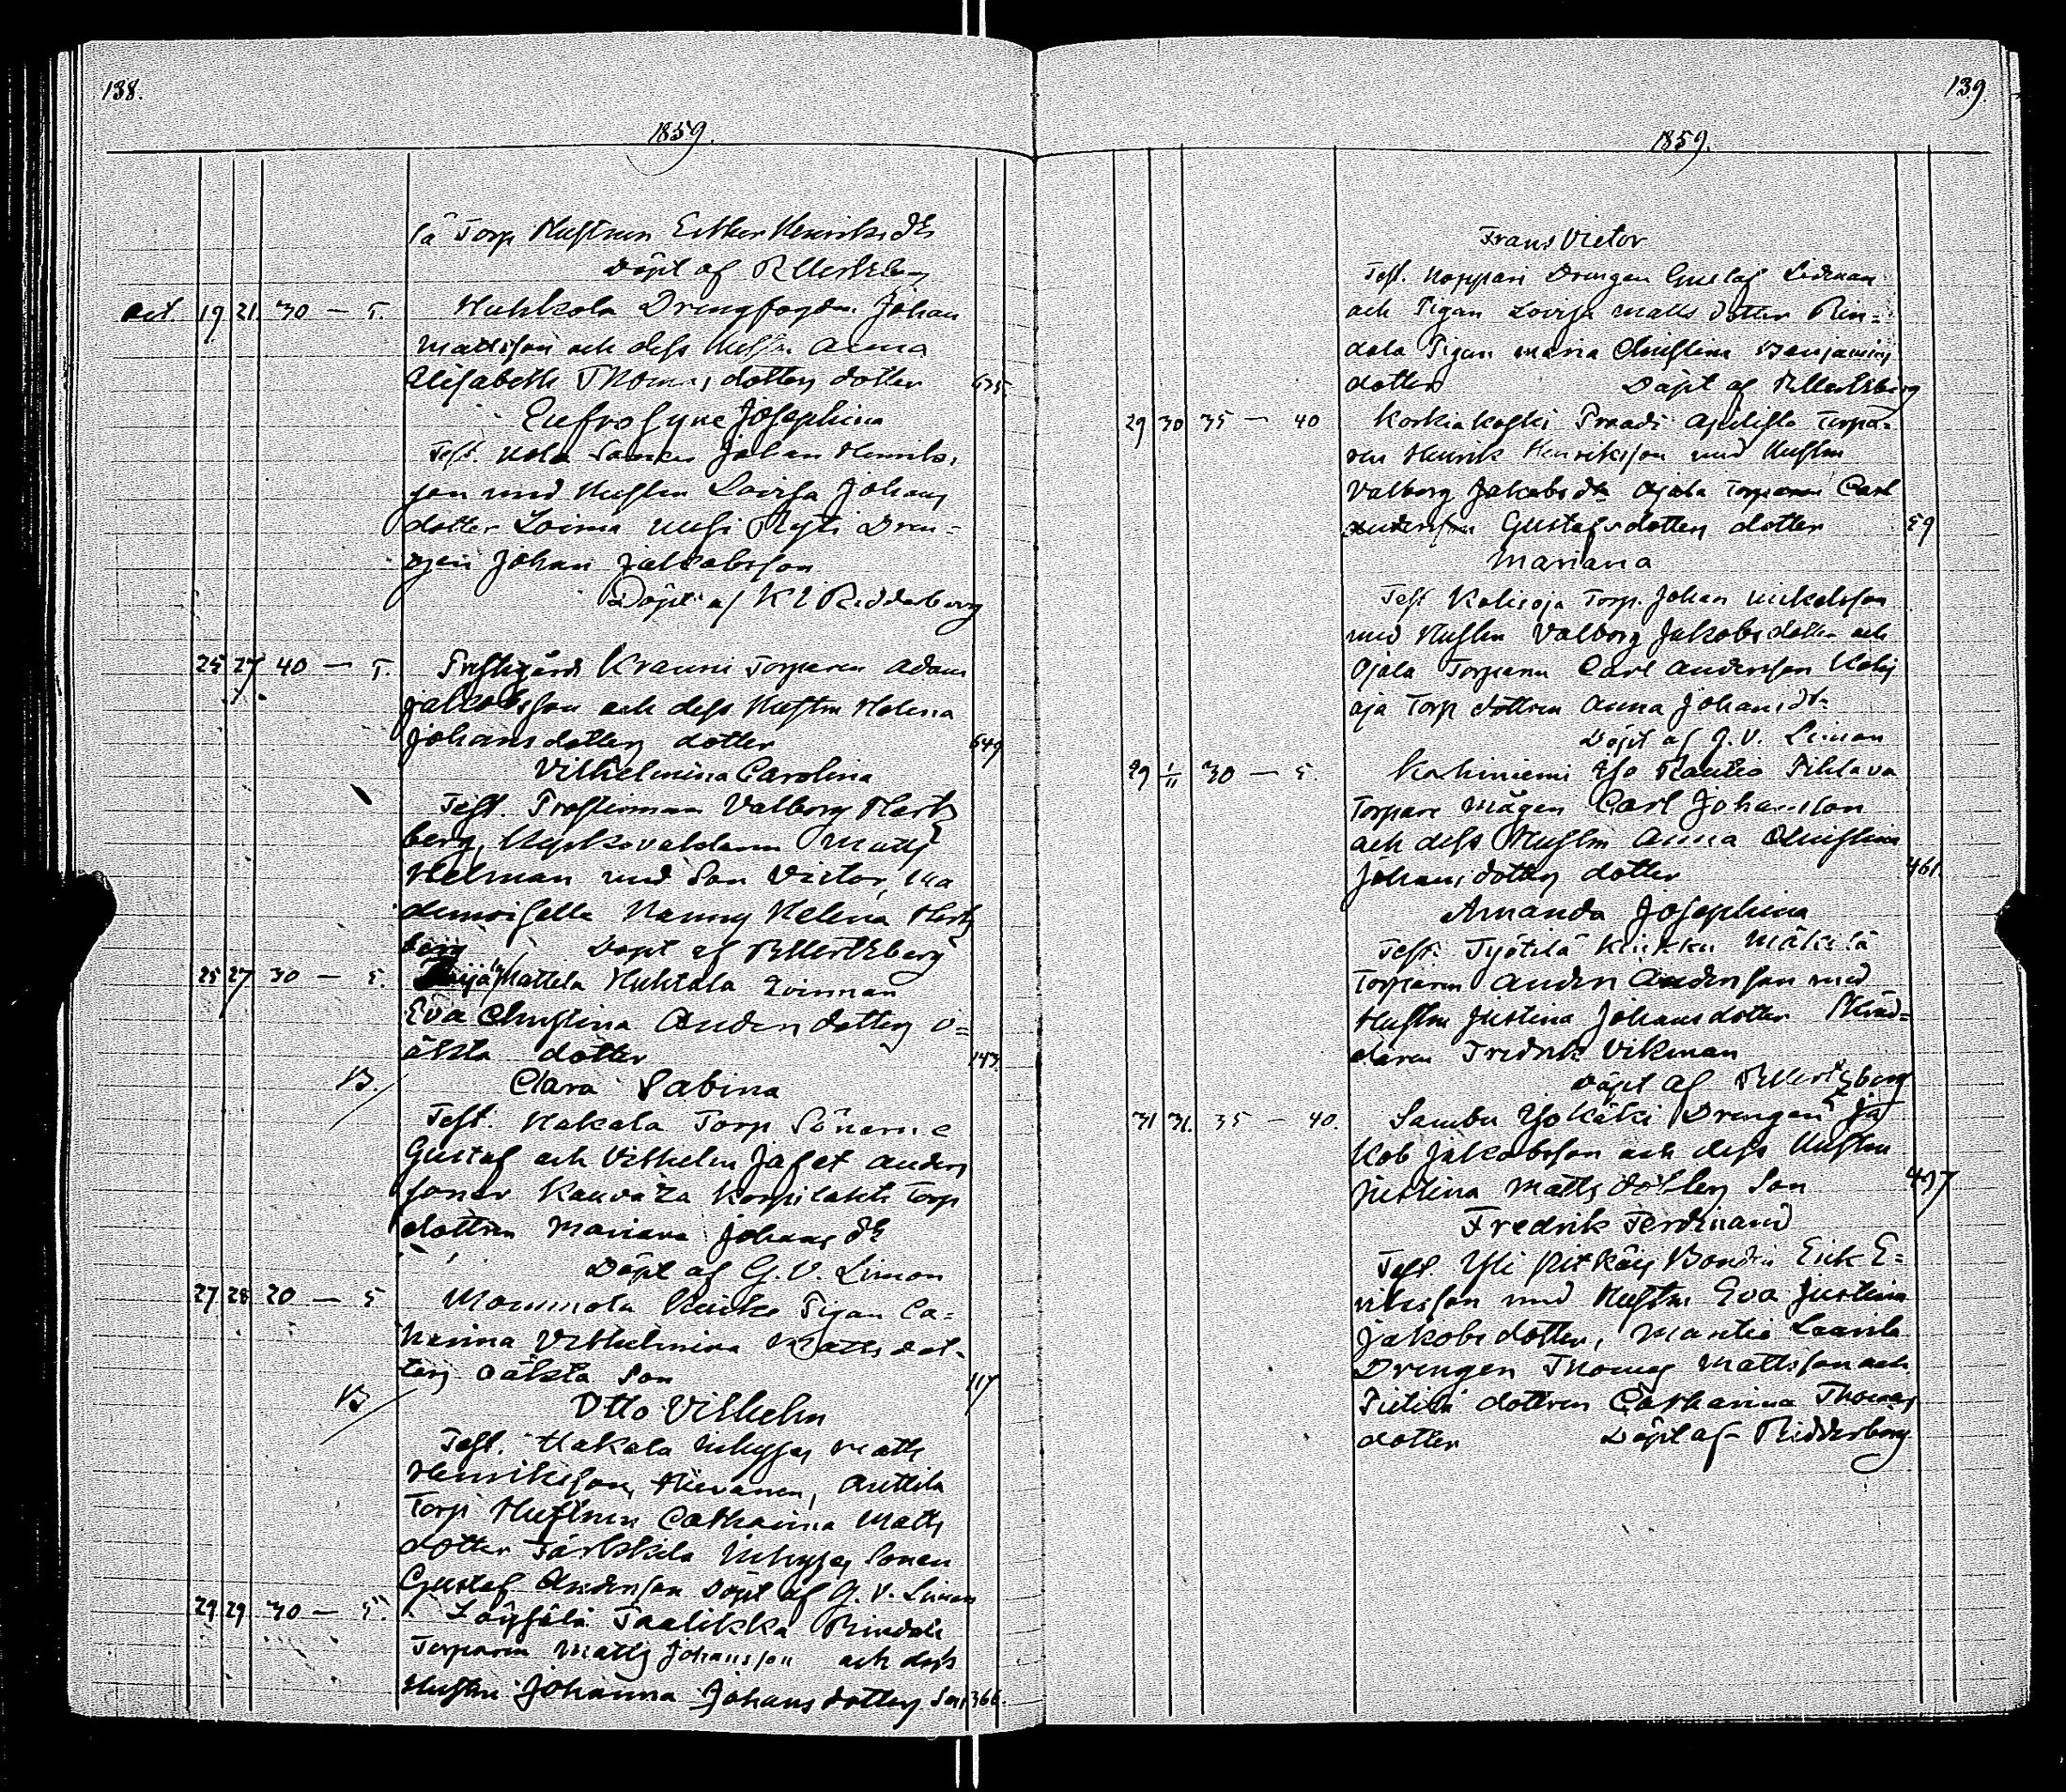 138.
1859.
sä Torp Hustrun Esther Henriks dr
Döpt af R Mertzberg
Oct. 19 21. 30 — 5. Huhkola Drengfogden Johan
Mattsson och dess Hustru Anna
Elisabeth Thomas dotters dotter 675.
Eufrosyne Josephina
Test. Uola Johan Henriks
son med Hustru Lovisa Johans
dotter Loima Uusi Dren=
gen Johan Jakobsson
Döpt af K E Ridderborg
25 27 40 — 5. Prestgårds Krauni Torparen Adam
Jakobsson och dess Hustru Helena
Johans dotters dotter 649
Vilhelmina Carolina
Test. Prostinnan Valborg Hertz
berg, Matts
Helman med Son Victor,
demoiselle Nanny Helena Hertz
berg Döpt af R Hertzberg
25 27 30 — 5. Mattila Huhtala Qvinnan
Eva Christina Anders dotters o=
äkta dotter 143.
B. Clara Sabina
Test. Hakala Torp Sönerne
Gustaf och Vilhelm Jafet Anders
söner Kauvatza Korpilahti Torp
dottren Mariana Johans dr
Döpt af G. V. Limon
27 28 20 — 5 Mommola Pigan Ca=
tharina Vilhelmina Matts dot=
ters oäkta Son 117
B Otto Vilhelm
Test. Hakala Inhyses Matts
Henriksson Anttila
Torp Hustrun Catharina Matts
dotter Inhyses Sonen
Gustaf Andersson Döpt af G. V. Limon
29 29 30 — 5. Taalikka Rindala
Torparen Matts Johansson och dess
Hustru Johanna Johans dotters Son 366.
139.
1859.
Frans Victor
Test. Noppari Drengen Gustaf Lidman
och Pigan Lovisa Matts dotter Rin=
dala Pigan Maria Christina Benjamins
dotter Döpt af R Hertzberg
29 30 35 — 40 Korkiakoski Torpa=
ren Henrik Henriksson med Hustru
Valborg Jakobs dr Ojala Torparen Carl
Andersson Gustafs dotters dotter 59
Mariana
Test Kolisoja Torp. Johan Mikelsson
med Hustru Valborg Jakobs dotter och
Ojala Torparen Carl Andersson Kolis
oja Torp dottren Anna Johans dr
Döpt af G. V. Limon
29 1/11 30 — 5. Kahiniemi Yso Rautio Pihlava
Torpare Mågen Carl Johansson
och dess Hustru Anna Christina
Johans dotters dotter 461.
Amanda Josephina
Test. Työtilä Kiukku Mäkilä
Torparen Anders Andersson med
Hustru Justina Johans dotter
daren Fredrik Vikman
Döpt af R Hertzberg
31 31. 35 — 40. Sambu Yso Käki Drengen Ja
kob Jakobsson och dess Hustru
Justina Matts dotters Son 497
Fredrik Ferdinand
Test. Yli Pitkäis Bonden Erik E=
riksson med Hustru Eva Justina
Jakobs dotter,
Drengen Thomas Mattsson och
Pietilä dottren Catharina Thomas
dotter Döpt af Ridderborg